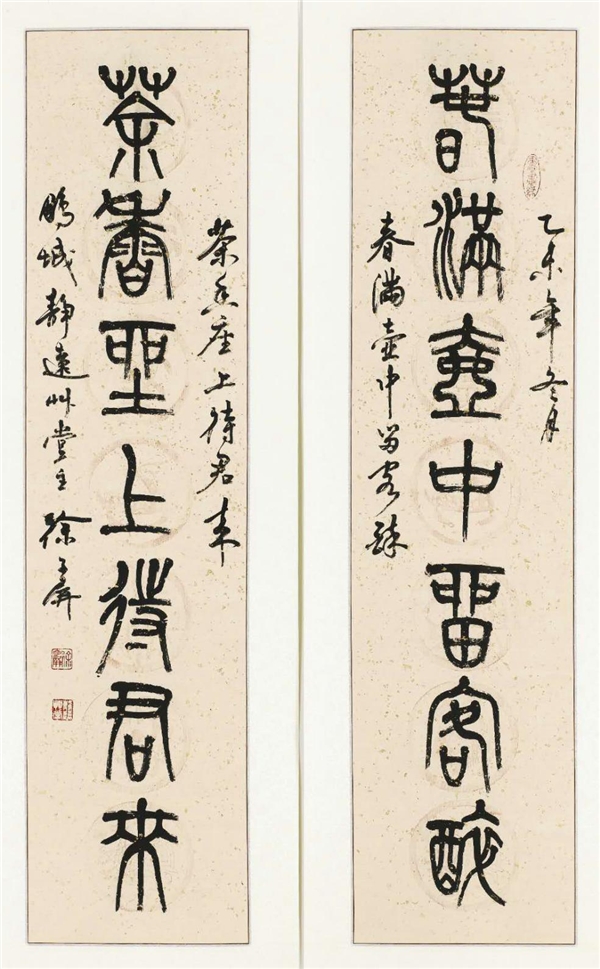 乙未年冬月
春滿壺中留客醉
春滿壺中留客醉
茶香座上待君来
茶香坐上待君來
鵬城靜遠艸堂主徐子屏